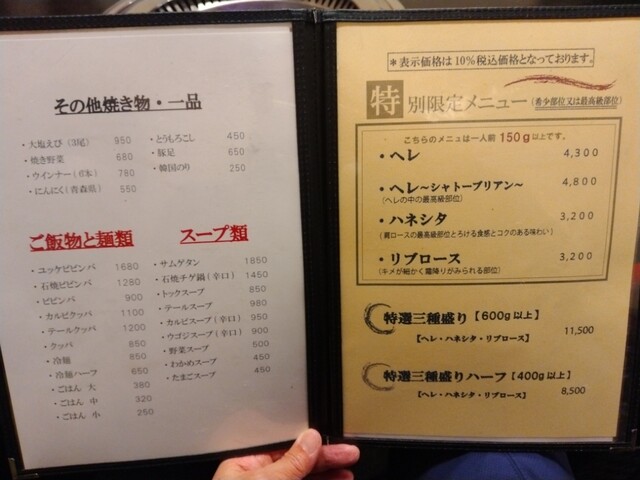 その他焼き物・一品
・大海えび(3尾) 950
・焼き野菜 680
・ウインナー(6本) 780
・にんにく(青森県) 550
・とうもろこし 450
・豚足 650
・韓国のり 250
ご飯物と麺類
・ユッケビビンバ 1680
・石焼ビビンバ 1280
・ビビンバ 900
・カルビクッパ 1100
・テールクッパ 1200
・クッパ 850
・冷麺 850
・冷麺ハーフ 650
・ごはん 大 380
・ごはん 中 320
・ごはん 小 250
スープ類
・サムゲタン 1850
・石焼チゲ鍋(辛口) 1450
・トックスープ 850
・テールスープ 980
・カルビスープ(辛口) 950
・ウゴジスープ(辛口) 900
・野菜スープ 500
・わかめスープ 450
・たまごスープ 450
*表示価格は10%税込価格となっております。
特別限定メニュー(希少部位又は最高級部位)
こちらのメニューは一人前150g以上です。
・ヘレ 4,300
・ヘレ〜シャトーブリアン〜 4,800
(ヘレの中の最高級部位)
・ハネシタ 3,200
(肩ロースの最高級部位とろける食感とコクのある味わい)
・リブロース 3,200
(キメが細かく霜降りがみられる部位)
特選三種盛り【600g以上】
【ヘレ・ハネシタ・リブロース】 11,500
特選三種盛りハーフ【400g以上】
【ヘレ・ハネシタ・リブロース】 8,500